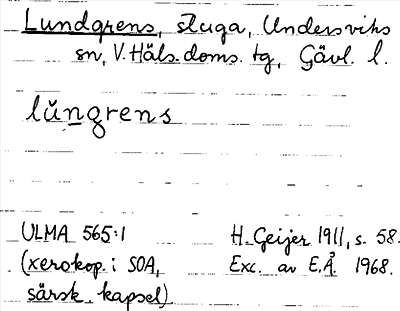 Lundgrens, stuga, Undersviks
sn, V. Häls. doms. tg, Gävl. l.
lŭngrens
ULMA 565:1
(xerokop. i SOA,
särsk. kapsel)
H. Geijer 1911, s. 58.
Exc. av E.Å. 1968.